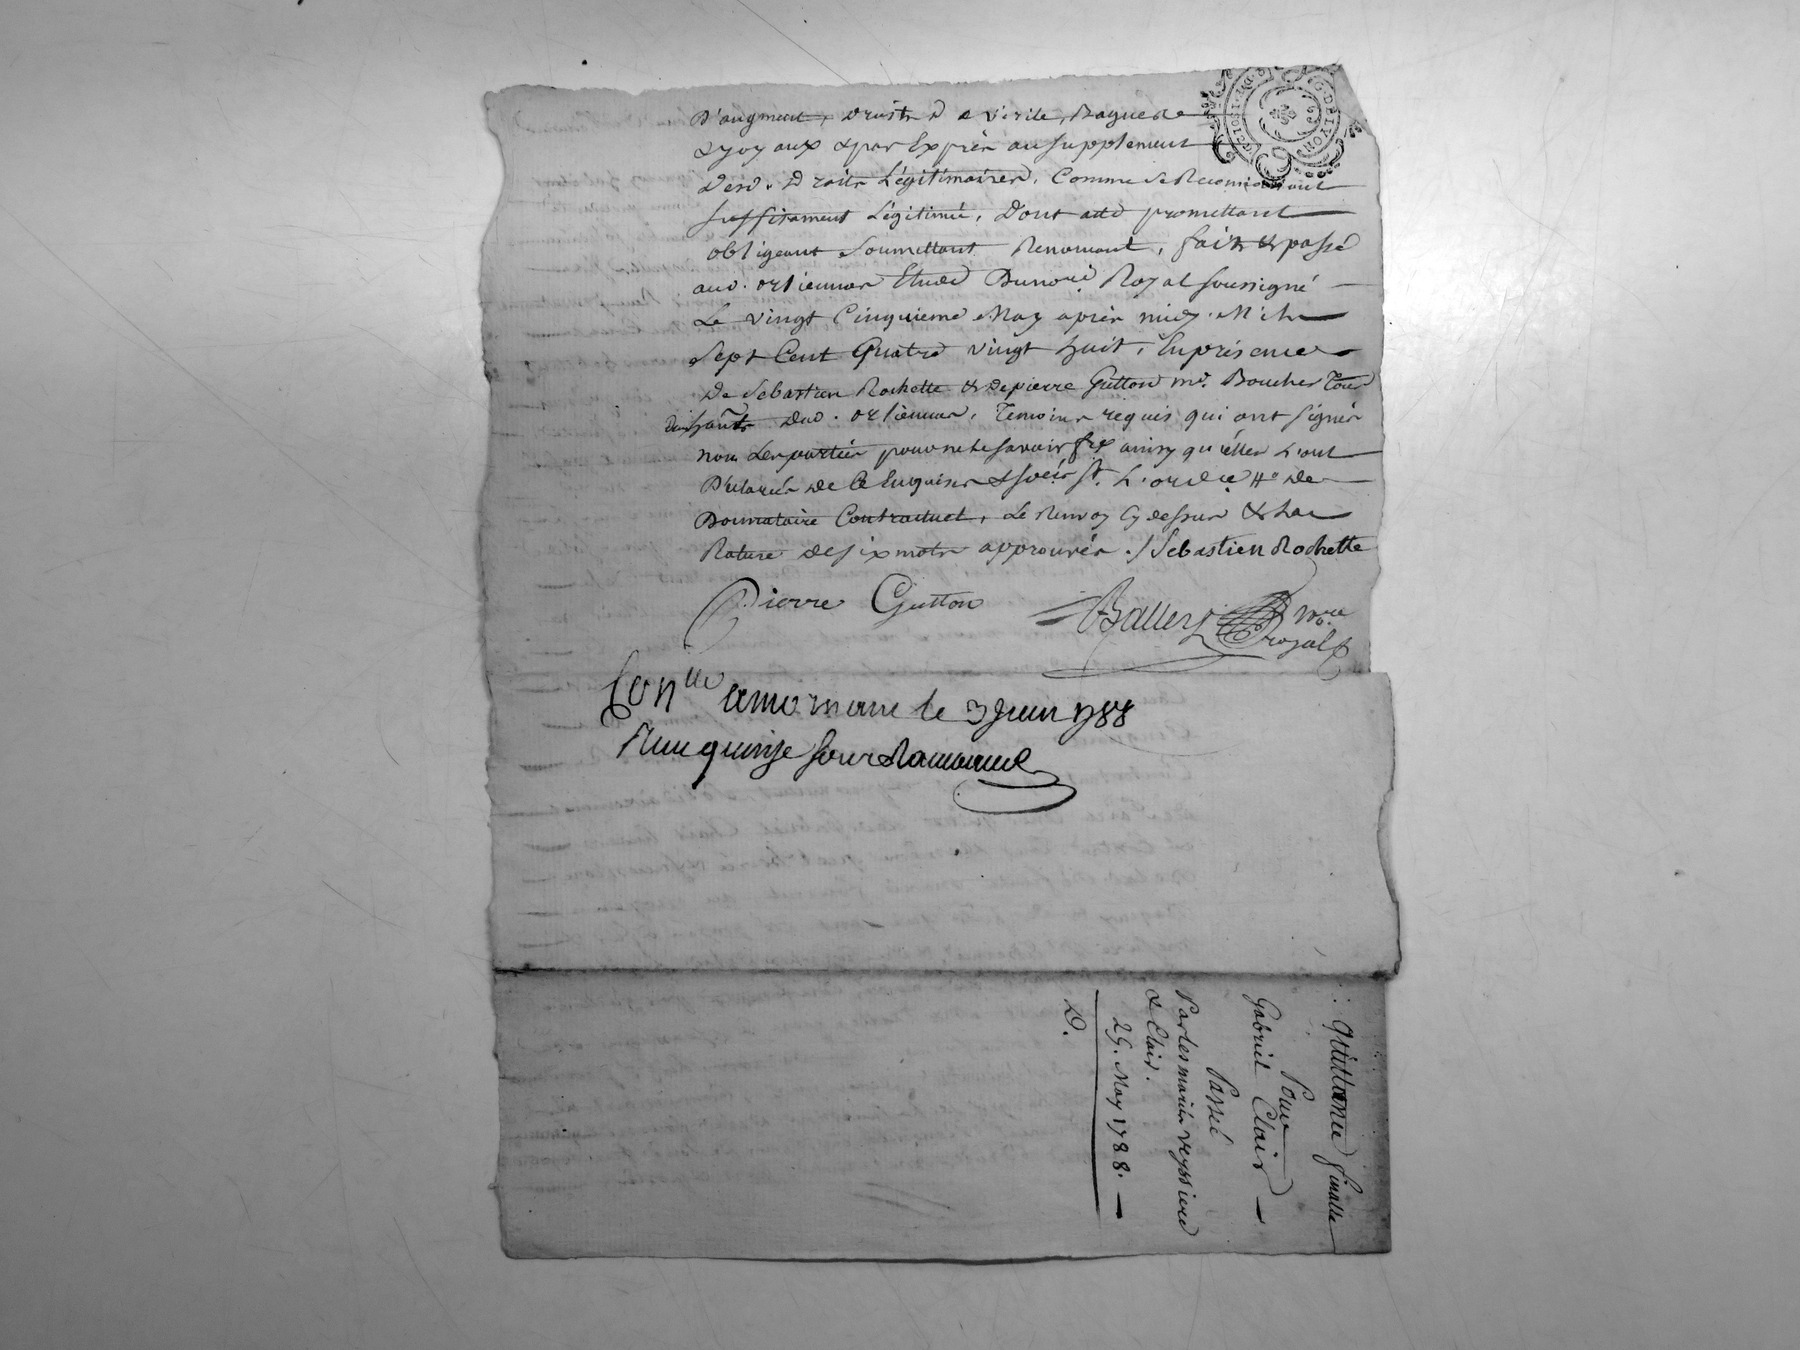 G. DE LYON
D'augment, droits de virile, Bagues
& joyaux & par Exprès au supplement
desd. Droits Légitimaires, Comme Se Reconnoissant
suffisament Légitimée, Dont acte promettant
obligeant Soumettant Renonçant, fait & passé
aud. orliennas Etude Du no.re Royal soussigné
Le vingt Cinquieme May après midy Mil
Sept Cent Quatre vingt huit, En présence
De Sebastien Rochette & de pierre Gutton m.d Boucher Tous
dud. orliennas, Temoins requis qui ont signés
non Les parties pour ne le savoir fre ainsy qu'elles L'ont
Déclarés de Ce Enquises &
Donnataire Contractuel, Le Renvoy Cy dessus & La
Rature de six mots approuvés ./. Sebastien Rochette
Pierre Gutton
royal
Con.lle a mornant le 3 Juin 1788
Reçu quinze sous
Quittance finalle
Pour
Gabriel Clair
Passé
Par les mariés veyssiere
& Clair.
25. May 1788.
D.